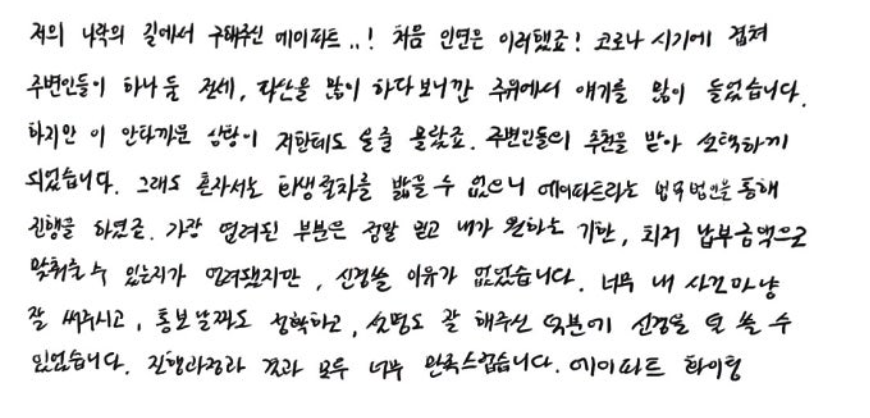 저의 나락의 길에서 구해주신 에이파트..! 처음 인연은 이러했죠! 코로나 시기에 겹쳐
주변인들이 하나 둘 전세, 파산을 많이 하다보니깐 주위에서 얘기를 많이 들었습니다.
하지만 이 안타까운 상황이 저한테도 올줄 몰랐죠. 주변인들의 추천을 받아 선택하게
되었습니다. 그래도 혼자서는 회생절차를 밟을 수 없으니 에이파트라는 법무법인을 통해
진행을 하였죠. 가장 염려된 부분은 정말 믿고 내가 원하는 기간, 최저 납부금액으로
맞춰줄 수 있는지가 염려됐지만, 신경쓸 이유가 없었습니다. 너무 내 사건마냥
잘 써주시고, 통보날짜도 정확하고, 설명도 잘 해주신 덕분에 신경을 덜 쓸 수
있었습니다. 진행과정과 결과 모두 너무 만족스럽습니다. 에이파트 화이팅